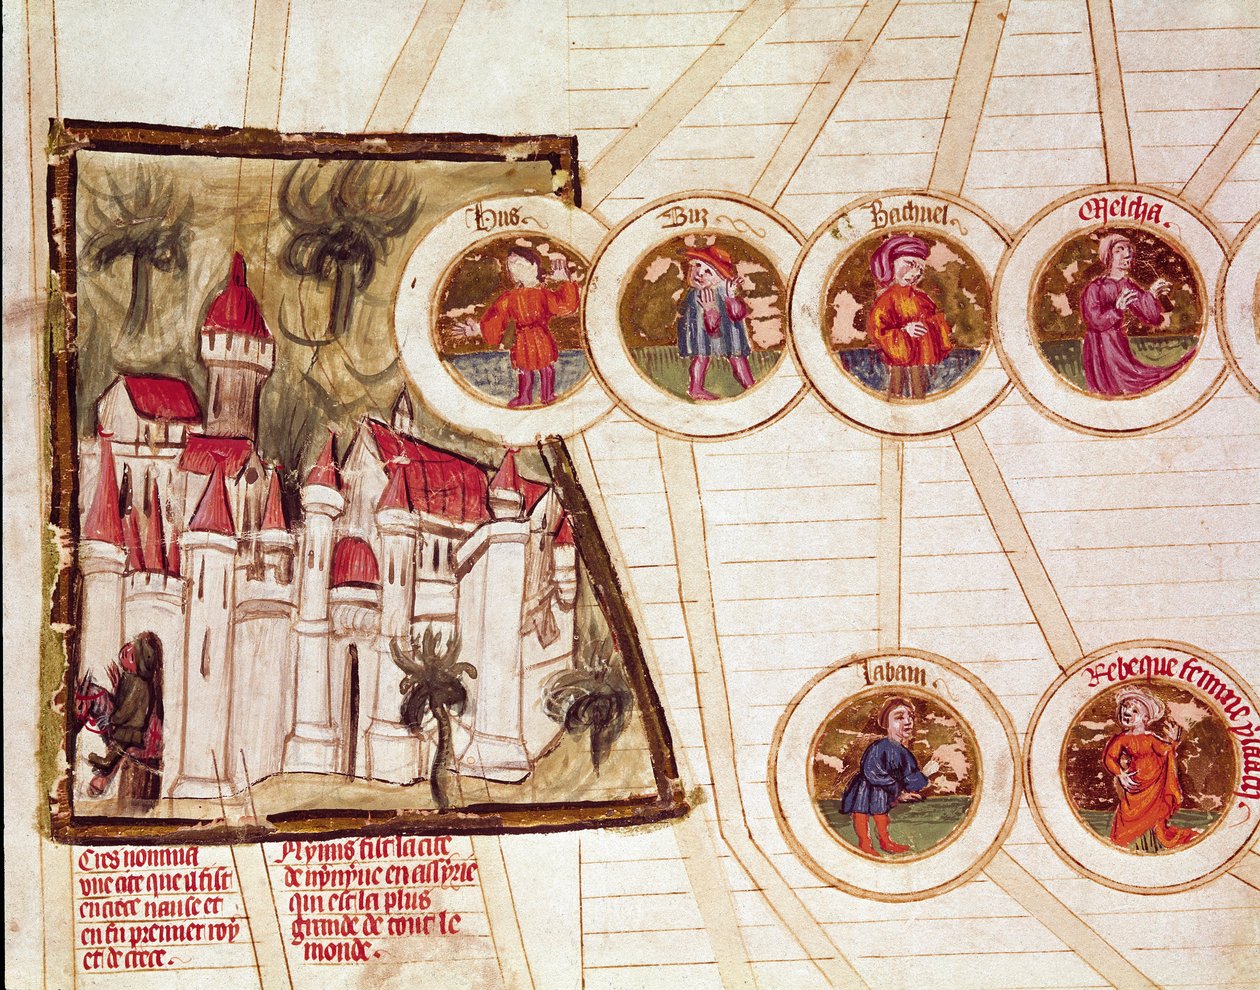 Hus.
Bur
Bathuel.
Melcha.
Labam.
Rebeque femme ysaac
Cres nomma
vne cite que il fist
en crece
et
en fu premier roy
et de crece.
Nynus fist la cite
de nynyue en assyrie
qui est la plus
grande de tout le
monde.